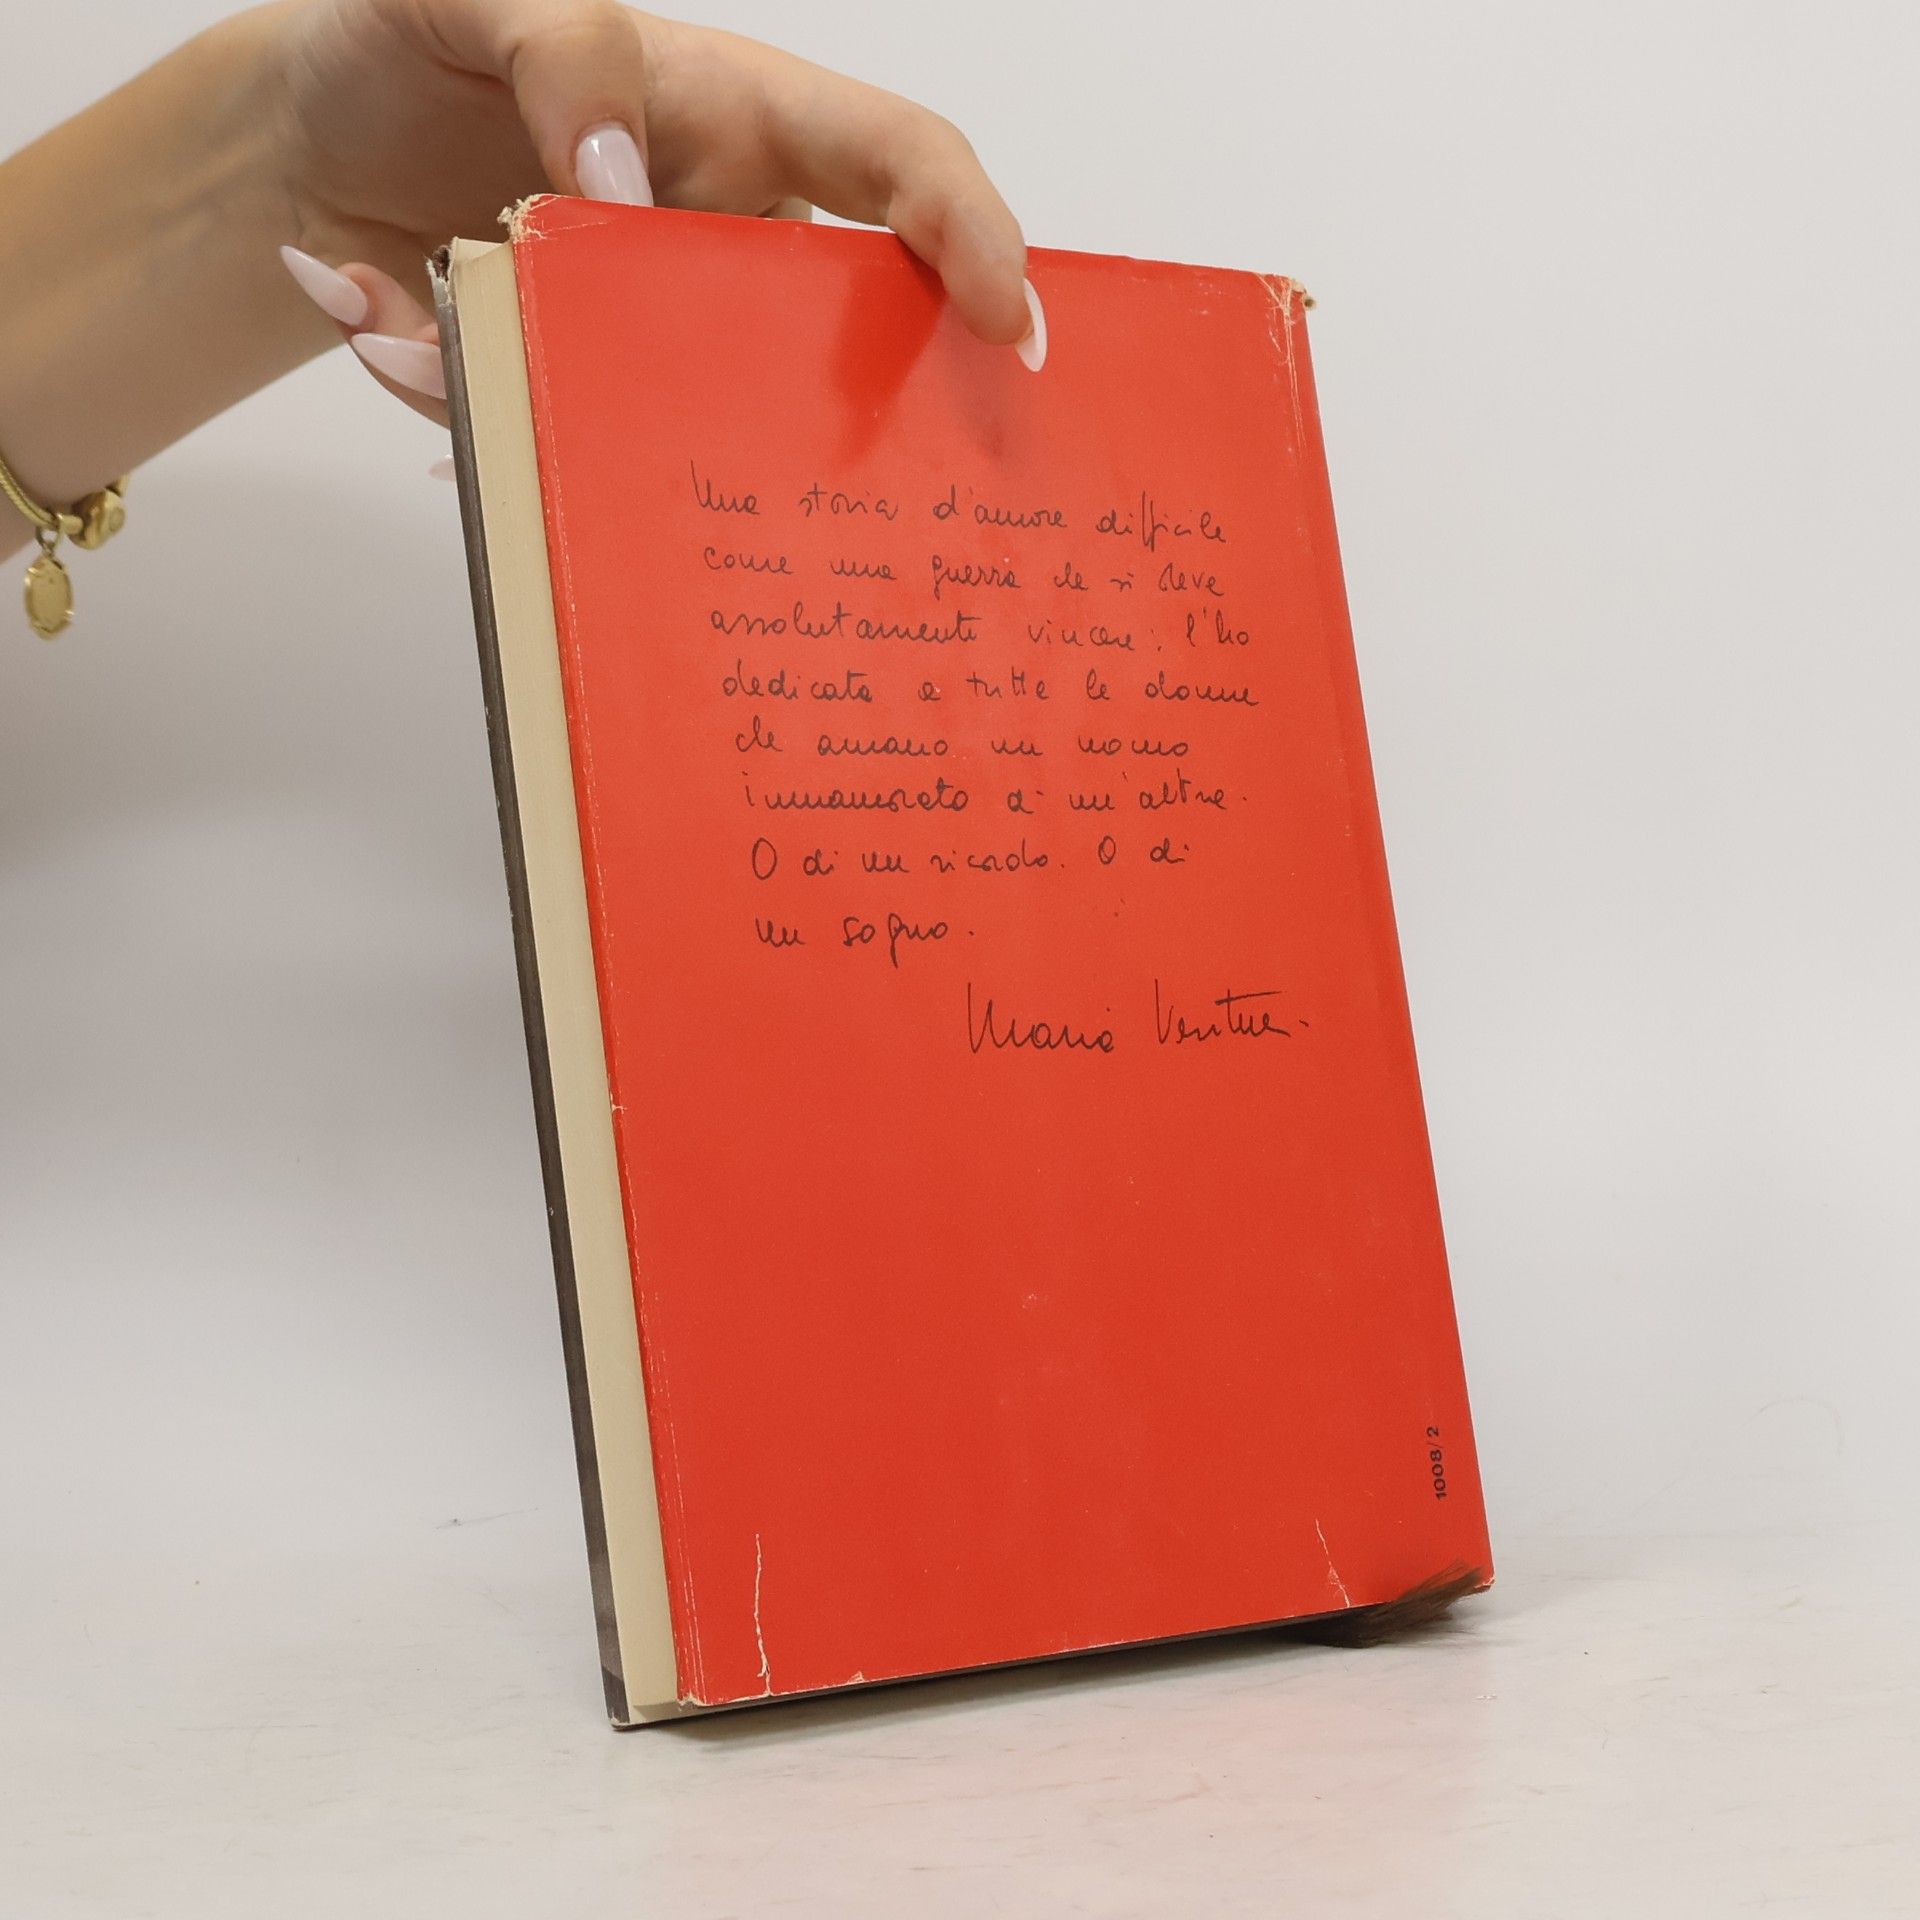 Una storia d'amore difficile
come una guerra che si deve
assolutamente vincere: l'ho
dedicata a tutte le donne
che amano un uomo
innamorato di un'altra.
O di un ricordo. O di
un sogno.
Maria Venturi
1008/2